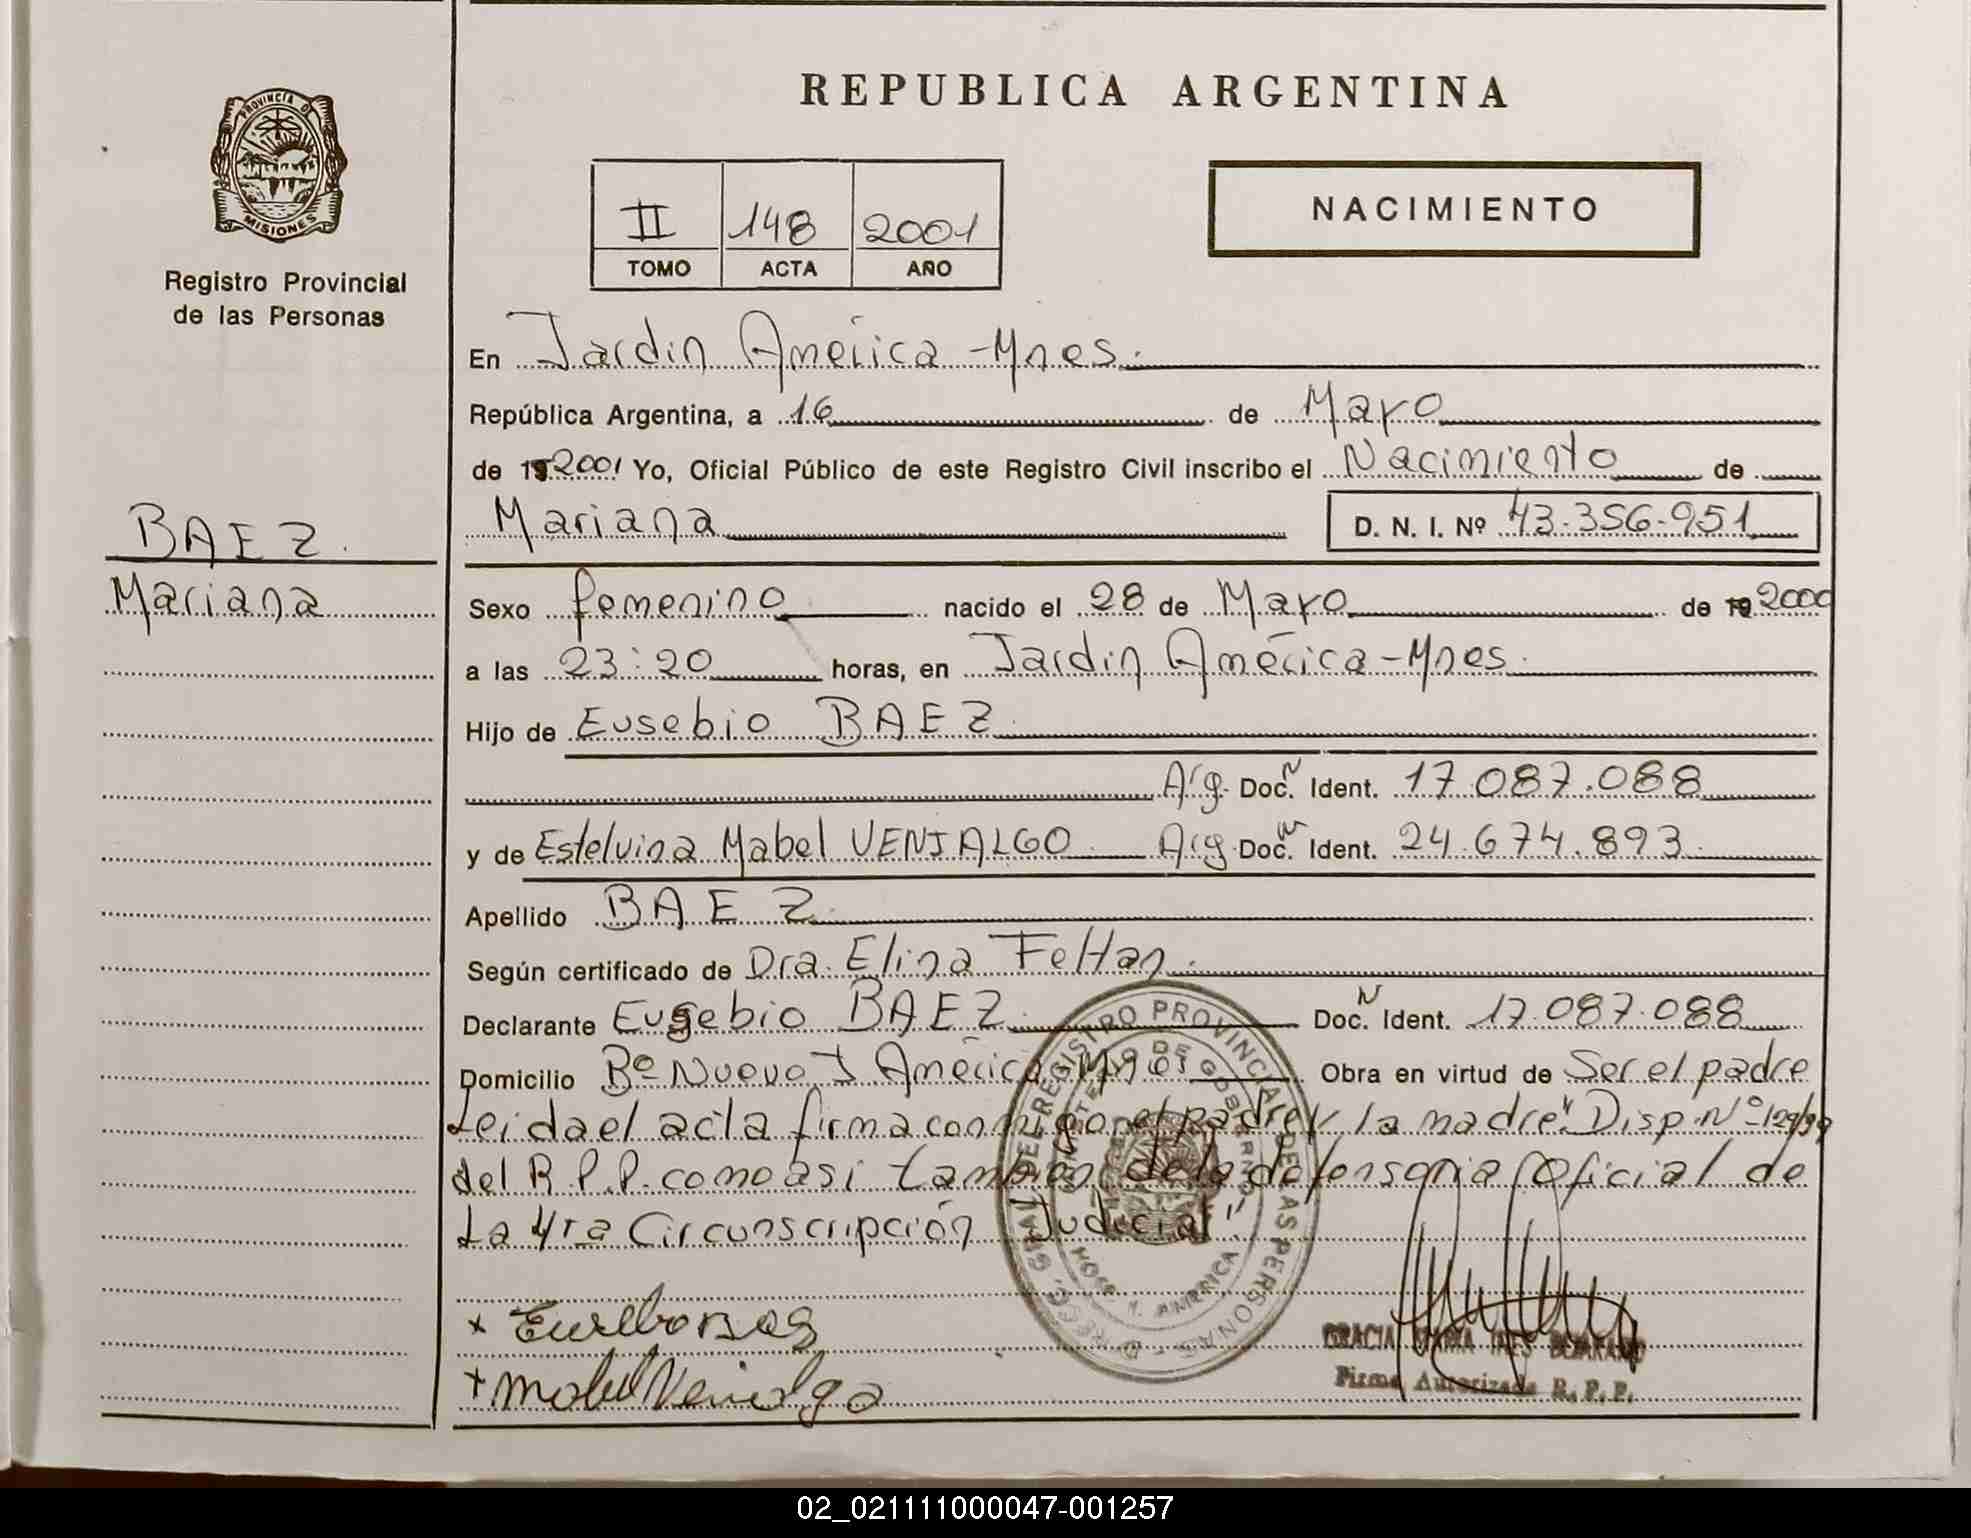 REPUBLICA ARGENTINA
PROVINCIA DE
MISIONES
Registro Provincial
de las Personas
II 148 2001
TOMO ACTA AÑO
NACIMIENTO
En Jardin América - Mnes.
República Argentina, a 16 de Mayo
de 19 2001 Yo, Oficial Público de este Registro Civil inscribo el Nacimiento de
Mariana D. N. I. Nº 43.356.951
BAEZ
Mariana
Sexo femenino nacido el 28 de Mayo de 19 2000
a las 23:20 horas, en Jardin América - Mnes.
Hijo de Eusebio BAEZ
Arg. Doc. N Ident. 17.087.088
y de Estelvina Mabel VENIALGO Arg. Doc. N Ident. 24.674.893
Apellido BAEZ
Según certificado de Dra. Elina Feltan.
Declarante Eusebio BAEZ Doc. N Ident. 17.087.088
Domicilio Bº Nuevo J. América Mnes Obra en virtud de Ser el padre
Leida el acta firma conmigo el padre y la madre." Disp. Nº 129/99
del R.P.P. como asi tambien de la defensoria Oficial de
La 4ta Circunscripción Judicial"
DIRECC. GRAL DEL REGISTRO PROVINCIAL DE LAS PERSONAS
MINISTERIO DE GOBIERNO
AMERICA
x Eusebio Baez
x Mabel Venialgo
GRACIA MARIA INES
Firma Autorizada R. P. P.
02_021111000047-001257